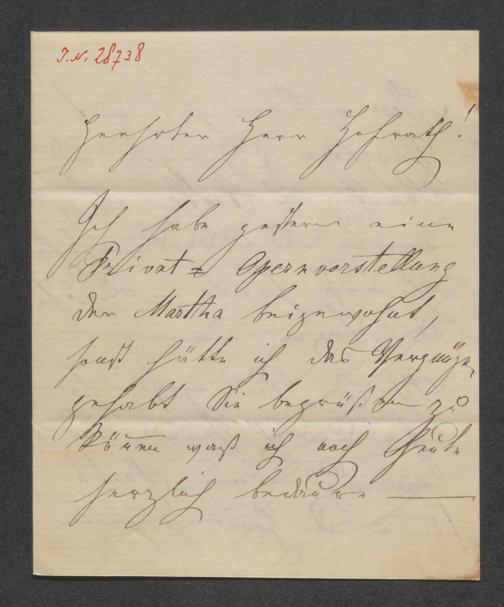 I.N. 28738
Geehrter Herr Hofrath!
Ich habe gestern eine
Privat= Opernvorstellung
der Martha beigewohnt,
sonst hätte ich das Vergnügen
gehabt Sie begrüßen zu
können was ich noch heute
herzlich bedaure —